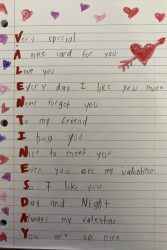 Very special
A nice card for you
Love you
Every day I like you more
Never forget you
To my friend
I hug you
Nice to meet you
Even you are my valentine
So I like you
Day and Night
Always my valentine
You are so nice